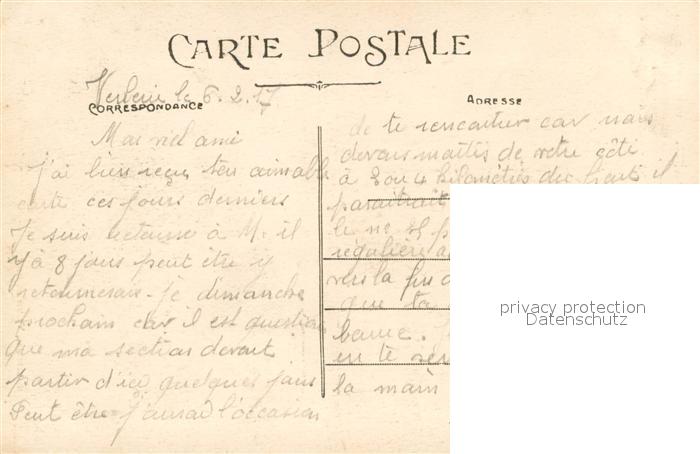 CARTE POSTALE
Verberie le 6.2.17
CORRESPONDANCE
ADRESSE
Mon viel ami
J'ai bien reçu ton aimable
carte ces jours derniers
Je suis retourné à M. il
y a 8 jours peut être y
retournerais-je dimanche
prochain car il est question
que ma section devait
partir d'ici quelques jours
Peut être j'aurai l'occasion
de te rencontrer car nous
devons de votre côté
à 3 ou 4 kilomètres du front il
paraitrait
le ne
régulière
vers la fin
que ta
bonne.
en te
la main
privacy protection
Datenschutz